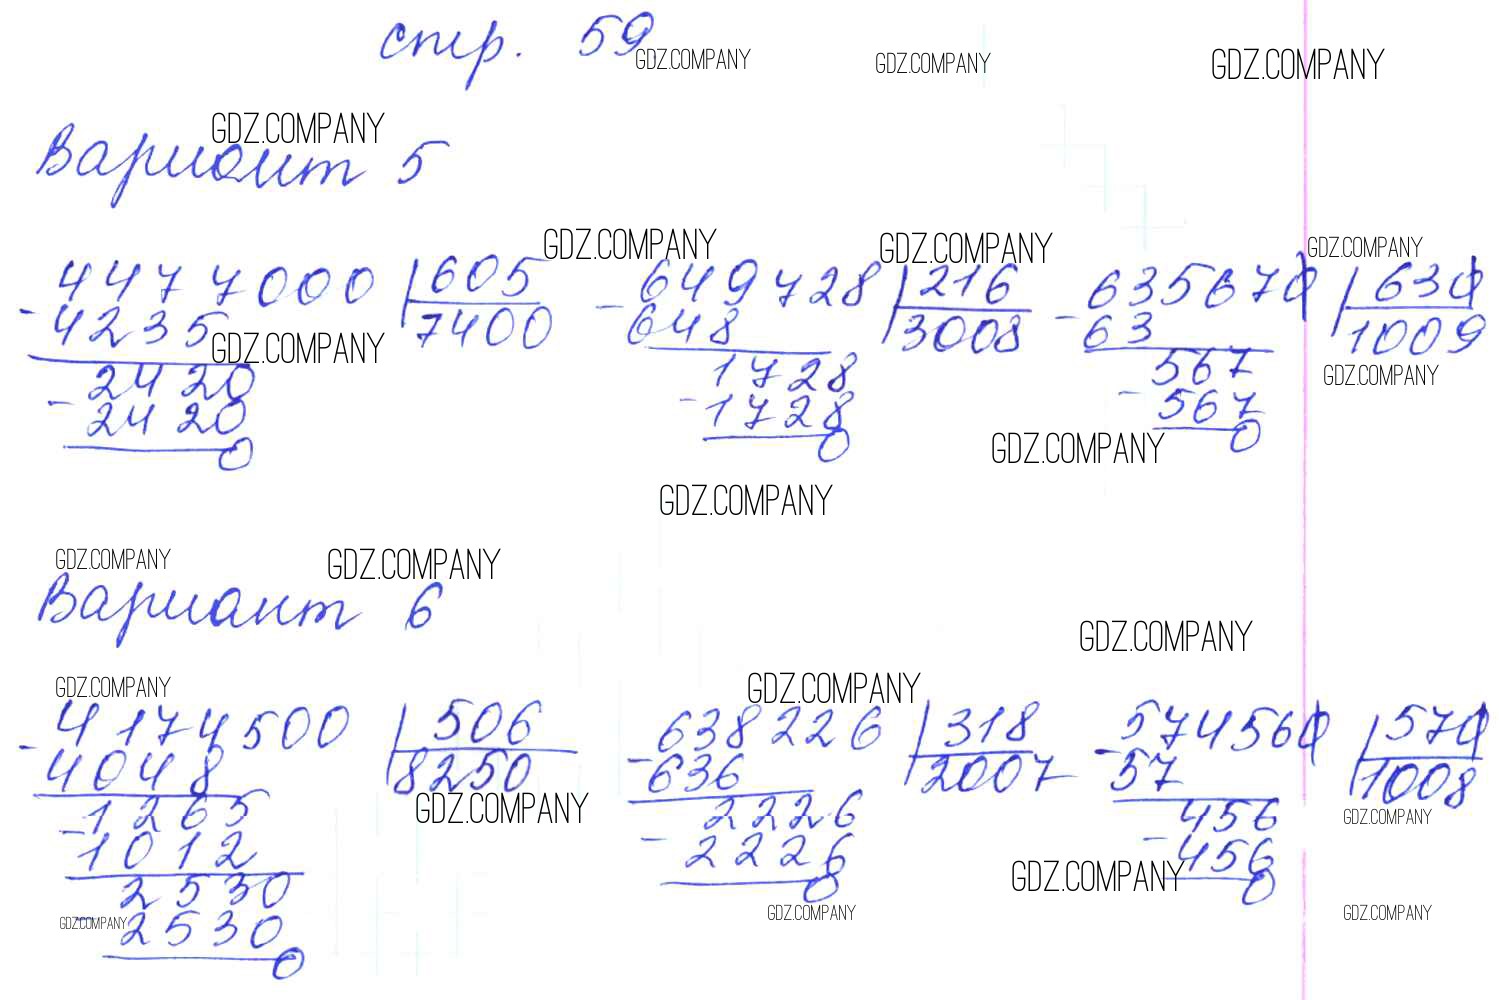 стр. 59
GDZ.COMPANY GDZ.COMPANY GDZ.COMPANY
GDZ.COMPANY
Вариант 5
GDZ.COMPANY GDZ.COMPANY GDZ.COMPANY
4477000 605 649728 216 635670 630
- 4235 7400 - 648 3008 - 63 1009
GDZ.COMPANY GDZ.COMPANY
2420 1728 567
- 2420 - 1728 - 567
0 0 0
GDZ.COMPANY
GDZ.COMPANY
GDZ.COMPANY GDZ.COMPANY
Вариант 6
GDZ.COMPANY
GDZ.COMPANY GDZ.COMPANY
4174500 506 638226 318 574560 570
- 4048 8250 - 636 2007 - 57 1008
GDZ.COMPANY GDZ.COMPANY
1265 2226 456
- 1012 - 2226 - 456
0 0
GDZ.COMPANY
2530
GDZ.COMPANY GDZ.COMPANY GDZ.COMPANY
- 2530
0